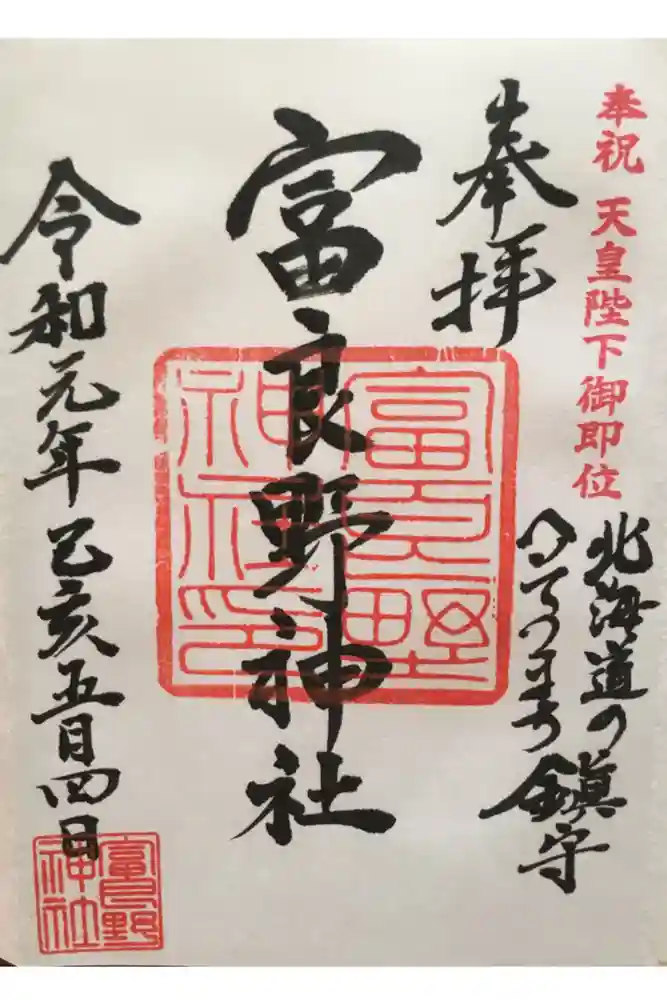 奉祝 天皇陛下御即位
北海道の
へそのまち
鎭守
奉拝
富良野神社
富良野神社印
令和元年己亥五月四日
富良野神社